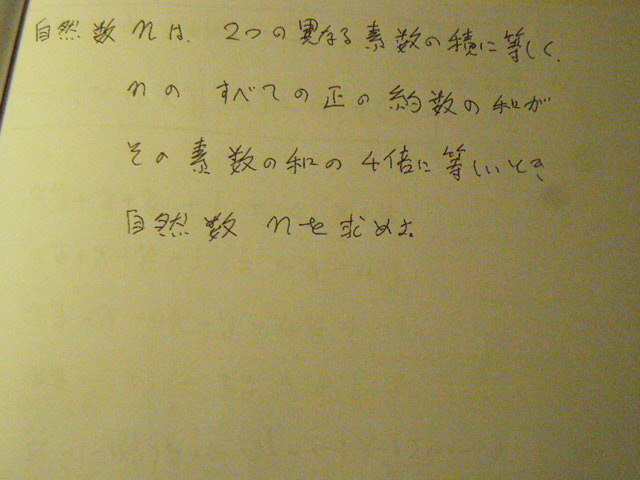 自然数nは、2つの異なる素数の積に等しく、
nの すべての正の約数の和が
その素数の和の4倍に等しいとき、
自然数 nを求めよ。